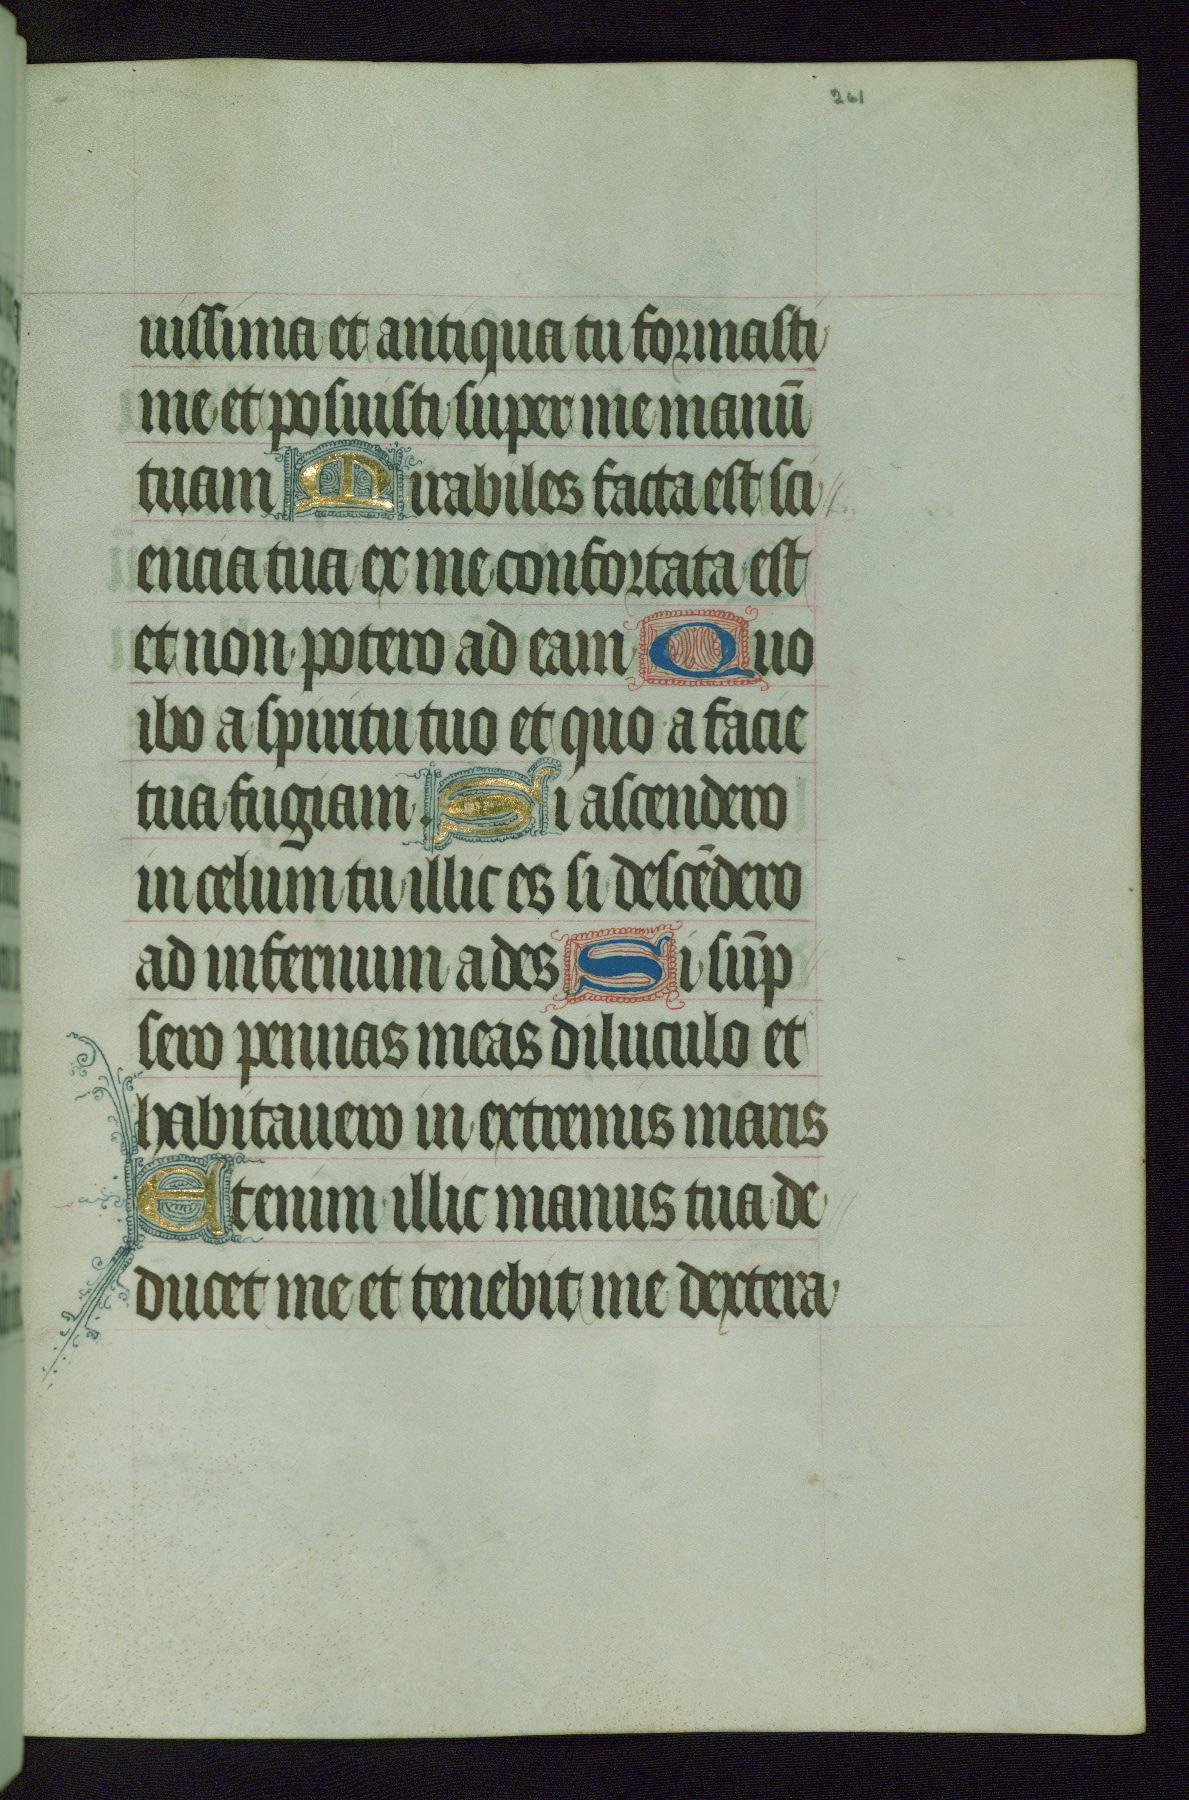 261
uissima et antiqua tu formasti
me et posuisti super me manū
tuam Mirabiles facta est sci
encia tua ex me confortata est
et non potero ad eam Quo
ibo a spiritu tuo et quo a facie
tua fugiam. Si ascendero
in celum tu illic es si descēdero
ad infernum ades Si sūp
sero pennas meas diluculo et
habitauero in extremis maris
Etenim illic manus tua de
ducet me et tenebit me dextera